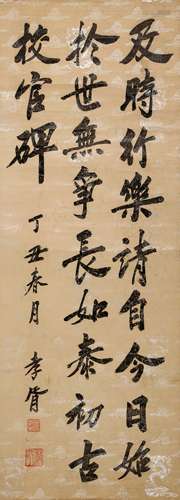 及時行樂請自今日始
於世無爭長如泰初古
校官碑
丁丑春月 孝胥